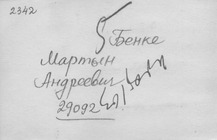 2342
Бенке
Мартын
Андреевич
29092